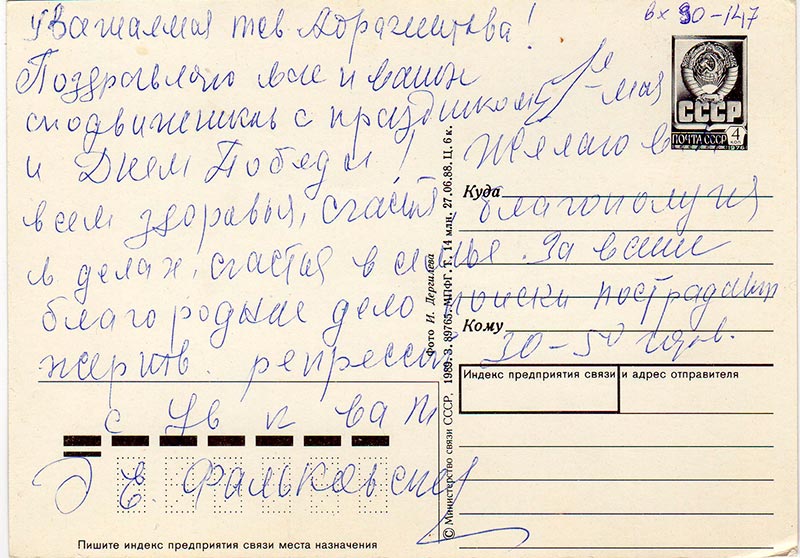 Вх 90-147
Уважаемая тов Абрагимова!
Поздравляю вас и ваших
сподвижников с праздником 1 - мая
и Днем Победы! Желаю вам
всем здоровья, счастья благополучия
в делах, счастья в семье. За ваши
благородные дело поиски пострадавш
жертв. репрессий 30-50 годов.
с ув к вам
Э Е. Фальковский
СССР
ПОЧТА СССР
4
КОП
1976
Куда
Кому
Индекс предприятия связи и адрес отправителя
Пишите индекс предприятия связи места назначения
Фото И. Дергилева
© Министерство связи СССР, 1989. З. 89765. МПФГ. Т. 14 млн. 27.06.88. Ц. 6 к.